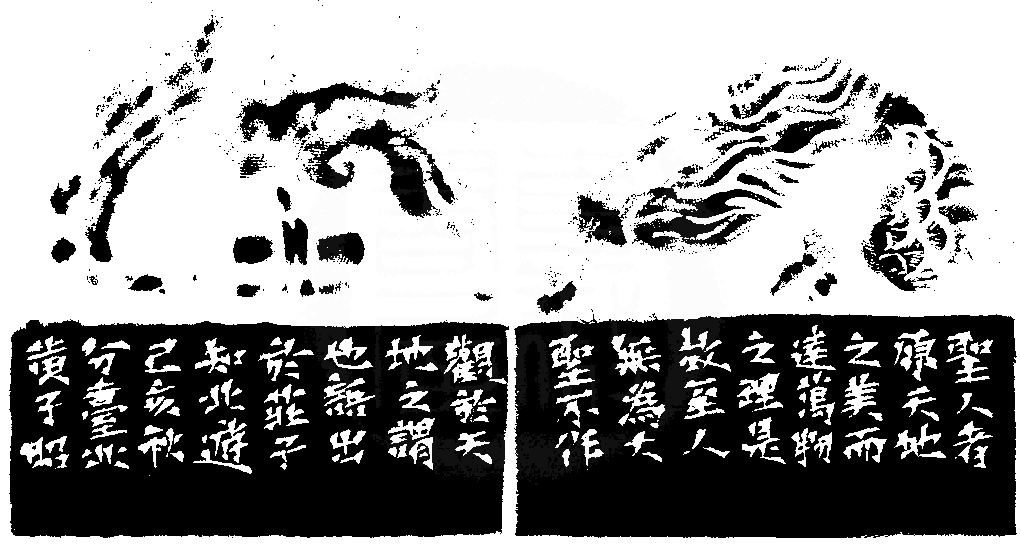 聖人者
原天地
之美而
達萬物
之理是
故至人
無為大
聖不作
觀於天
地之謂
也語出
於莊子
知北遊
己亥秋
分臺北
黃子